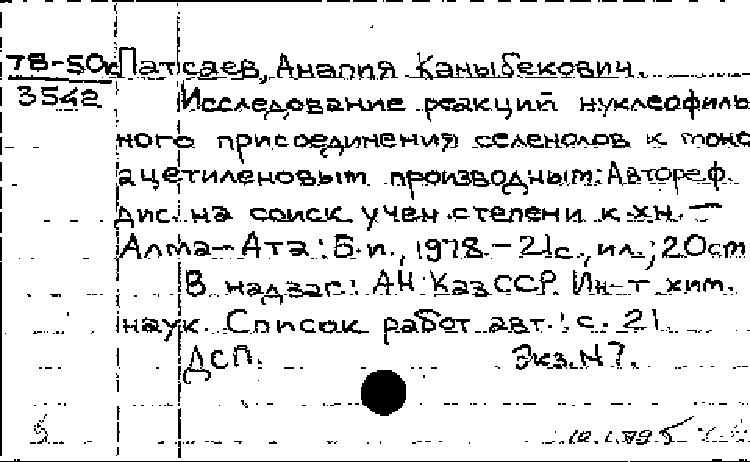 78-50к Патсаев, Анапия Каныбекович.
3542 Исследование реакций нуклеофиль
ного присоединения селенолов к моно
ацетиленовым производным: Автореф.
дис. на соиск учен степени к.хн. —
Алма-Ата: Б.и., 1978. - 21с., ил.; 20см
В надзаг: АН КазССР. Ин-т хим.
наук. Список работ авт.: с. 21
ДСП. Экз. N7.